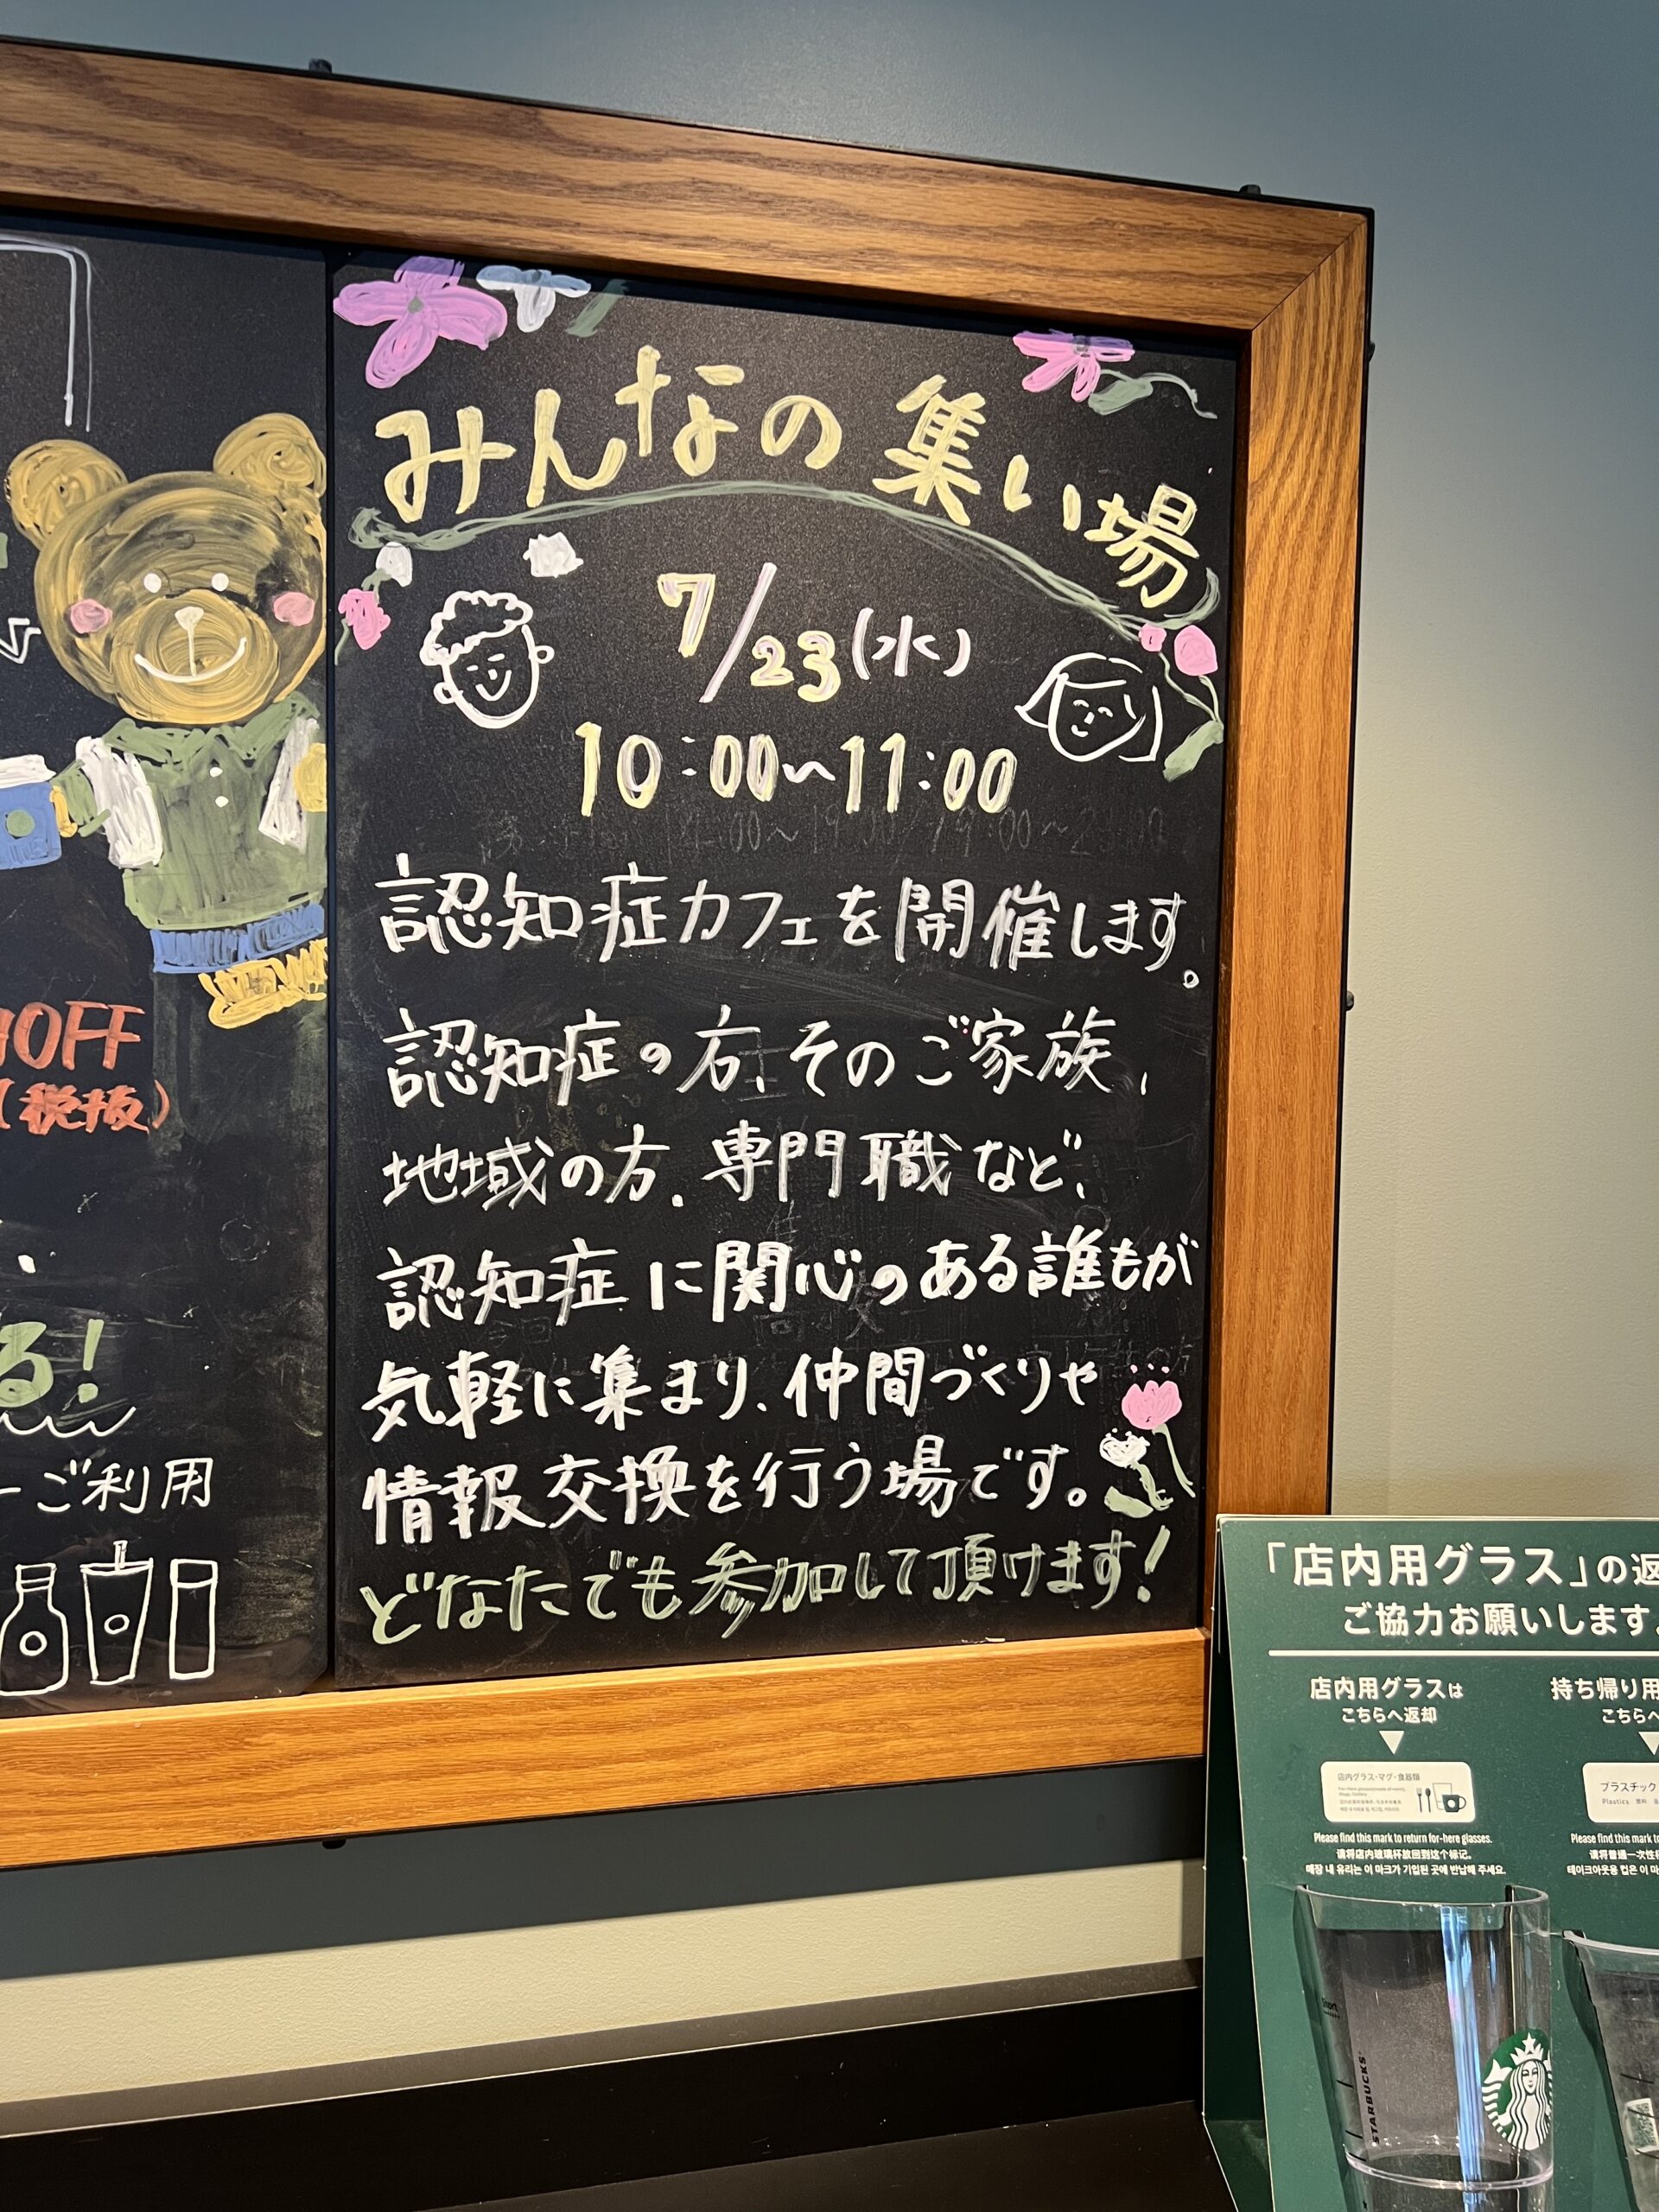 みんなの集い場
7/23(水)
10:00〜11:00
認知症カフェを開催します。
認知症の方、そのご家族、
地域の方、専門職など、
認知症に関心のある誰もが
気軽に集まり、仲間づくりや
情報交換を行う場です。
どなたでも参加して頂けます!
OFF
(税抜)
る!
ご利用
「店内用グラス」の返
ご協力お願いします。
店内用グラスは
こちらへ返却
店内グラス・マグ・食器類
Please find this mark to return for-here glasses.
请将店内玻璃杯放回到这个标记。
매장 내 유리는 이 마크가 기입된 곳에 반납해 주세요.
持ち帰り用
こちらへ
プラスチック
Plastics
Please find this mark to
请将普通一次性
테이크아웃용 컵은 이 마
Short
STARBUCKS